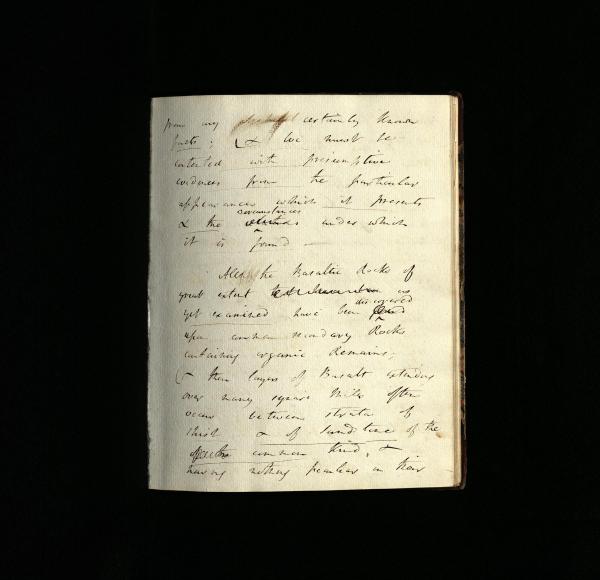 from any certainly known
facts; & we must be
contented with presumptive
evidences from the particular
appearances which it presents
circumstances
& the under which
it is found —
All the Basaltic Rocks of
great extent as
discovered
yet examined have been found
upon common secondary Rocks
containing organic Remains;
& then layers of Basalt extending
over many square Miles often
occur between strata of
shist & of sandstone of the
common kind, &
having nothing peculiar in their